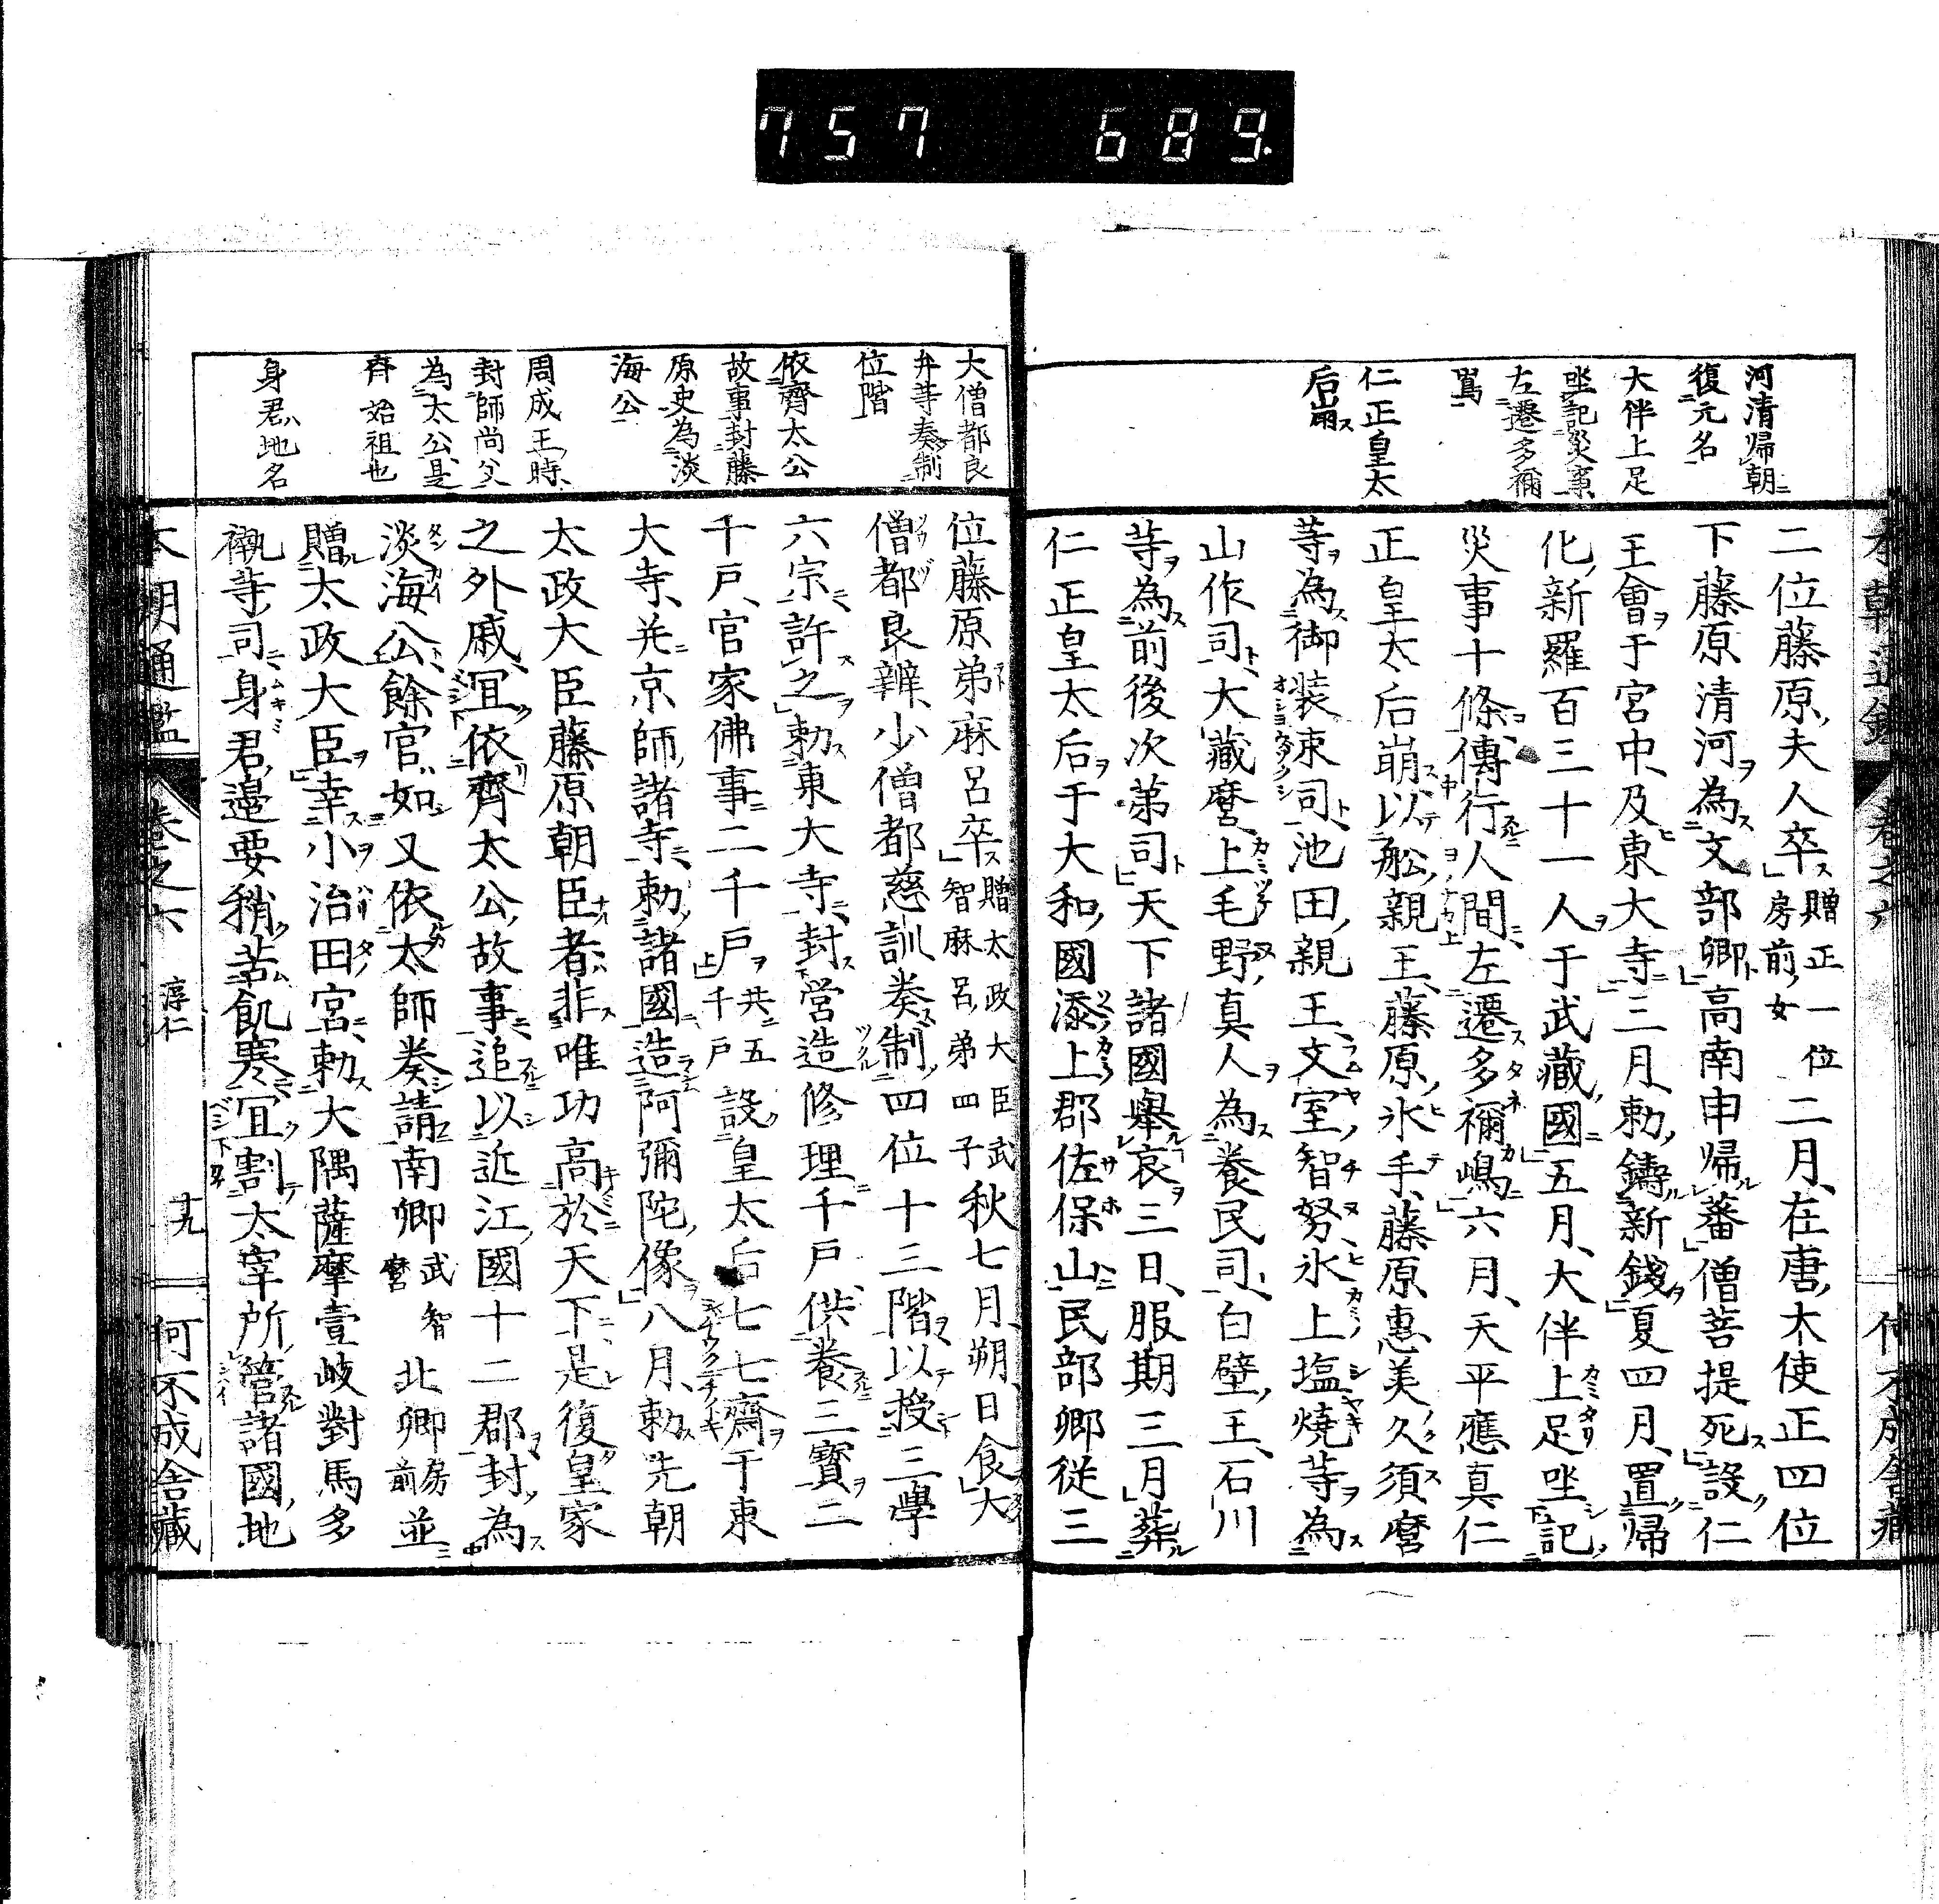 757 689
河清帰朝
復元名
大伴上足
坐記災事
左遷多禰
嶌
仁正皇太
后崩
二位藤原夫人卒贈正一位房前女二月在唐大使正四位
下藤原清河為文部卿高南申帰蕃僧菩提死設仁
王會于宮中及東大寺三月勅鑄新錢夏四月置帰
化新羅百三十一人于武藏國五月大伴上足坐記
災事十條傳行人間左遷多禰嶋六月天平應真仁
正皇太后崩以舩親王藤原氷手藤原惠美久須麿
等為御装束司池田親王文室智努氷上塩焼等為
山作司大藏麿上毛野真人為養民司白壁王石川
等為前後次第司天下諸國舉哀三日服期三月葬
仁正皇太后于大和國添上郡佐保山民部卿従三
大僧都良
弁等奏制
位階
依齊太公
故事封藤
原史為淡
海公
周成王時
封師尚父
為太公是
齊始祖也
身君地名
位藤原弟麻呂卒贈太政大臣武智麻呂弟四子秋七月朔日食大
僧都良辨少僧都慈訓奏制四位十三階以授三學
六宗許之勅東大寺封営造修理千戸供養三寳二
千戸官家佛事二千戸共五千戸設皇太后七七齋于東
大寺并京師諸寺勅諸國造阿彌陀像八月勅先朝
太政大臣藤原朝臣者非唯功高於天下是復皇家
之外戚冝依齊太公故事追以近江國十二郡封為
淡海公餘官如又依太師奏請南卿武智麿北卿房前並
贈太政大臣幸小治田宮勅大隅薩摩壹岐對馬多
禰等司身君邉要稍苦飢寒冝割太宰所管諸國地
本朝通鑑 卷之六 淳仁 十九 何不成舎藏